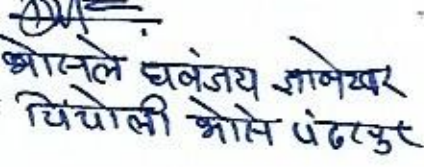 भोसले धनंजय ज्ञानेश्वर
चिंचोली भोसे पंढरपुर